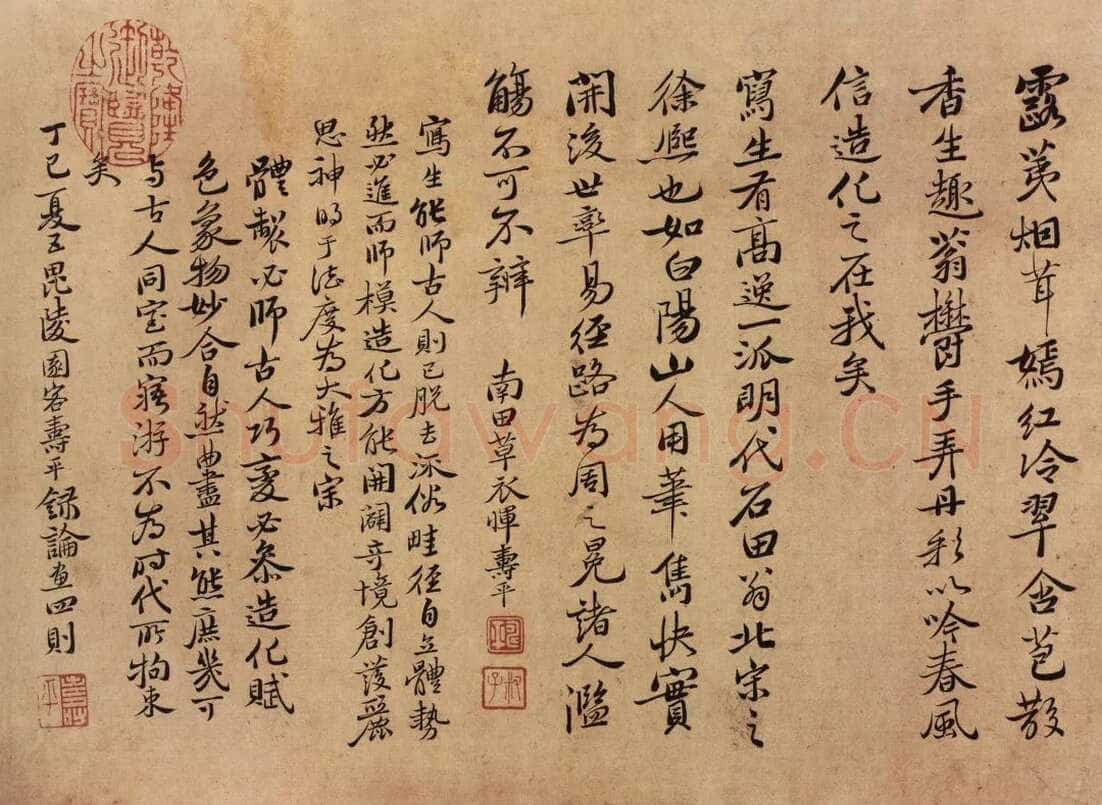 露荑烟茸嫣紅冷翠含苞散
香生趣蓊欝手弄丹彩以吟春風
信造化之在我矣
寫生有高逸一派明代石田翁北宋之
徐熙也如白陽山人用筆雋快實
開後世率易徑路為周之冕諸人濫
觴不可不辨 南田草衣惲壽平
叔子
寫生能師古人則已脫去派俗畦徑自立體勢
然必進而師模造化方能開闢奇境創護麗
思神明于法度為大雅之宗
體製必師古人巧變必參造化賦
色象物妙合自然曲盡其態庶幾可
与古人同室而寤游不為時代所拘束
矣
丁巳夏五毘陵園客壽平錄論畫四則
壽平
乾隆御覽之寶
Shufawang.cn